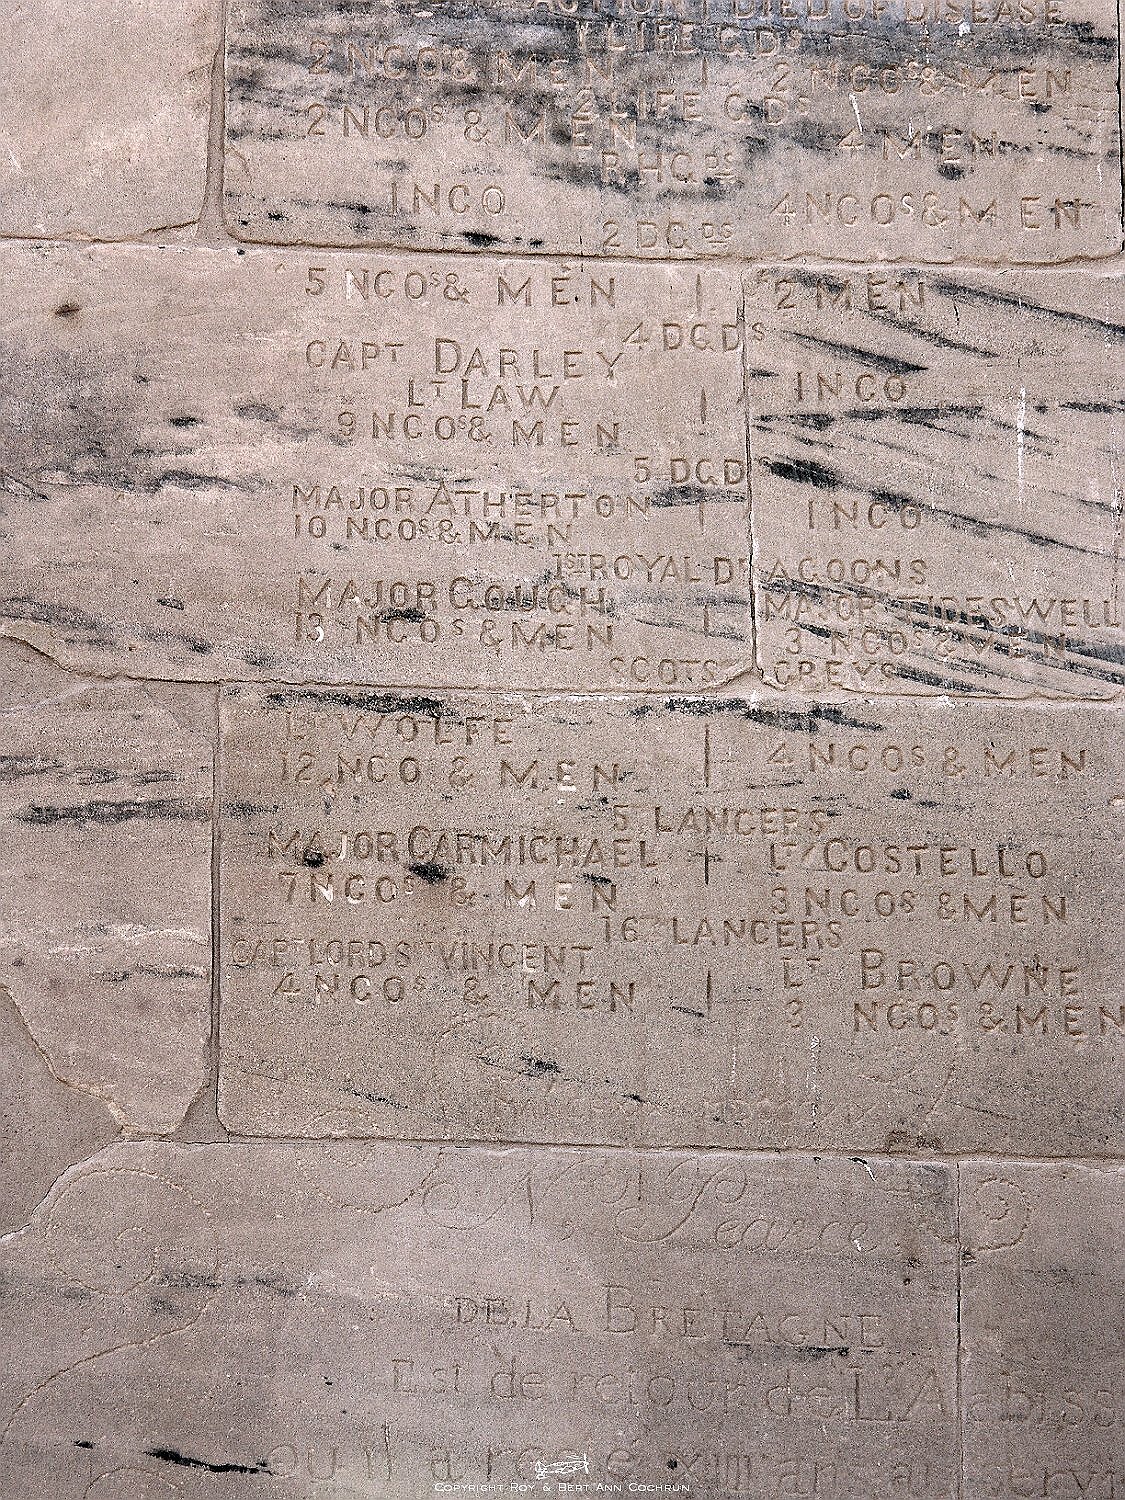 DIED OF DISEASE
1 LIFE GDS
2 NCOS & MEN | 2 NCOS & MEN
2 LIFE GDS
2 NCOS & MEN 4 MEN
R.HGDS
1 NCO 4 NCOS & MEN
2 DGDS
5 NCOS & MEN | 2 MEN
4 DGDS
CAPT DARLEY
LT LAW | 1 NCO
9 NCOS & MEN
5 DGDS
MAJOR ATHERTON | 1 NCO
10 NCOS & MEN
1ST ROYAL DRAGOONS
MAJOR GOUGH | MAJOR TIDESWELL
13 NCOS & MEN 3 NCOS & MEN
SCOTS GREYS
LT WOLFE | 4 NCOS & MEN
12 NCO & MEN
5 LANCERS
MAJOR CARMICHAEL † LT COSTELLO
7 NCOS & MEN 3 NCOS & MEN
16TH LANCERS
CAPT LORD ST VINCENT LT BROWNE
4 NCOS & MEN | 3 NCOS & MEN
Pearce
DE LA BRETAGNE
Est de retour de L'Abiss
COPYRIGHT ROY & BERT ANN COCHRUN